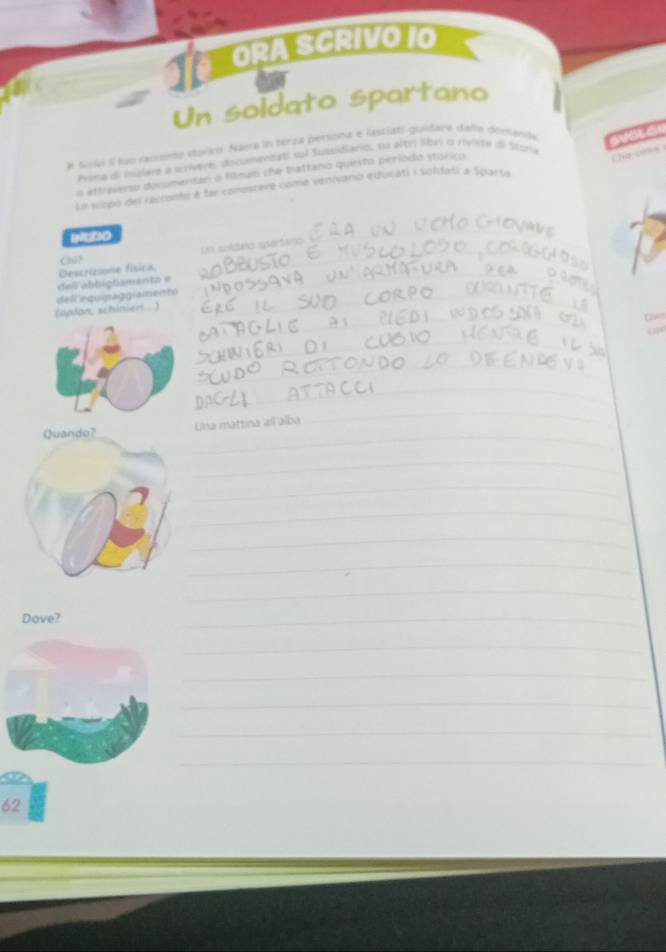 ORA SCRIVO IO
Un soldato spartano
Scrivi il tuo racconto storico. Narra in terza persona e lasciati guidare dalle domande.
Prima di iniziare a scrivere, documentati sul Sussidiario, su altri libri o riviste di Storia
o attraverso documentari o filmati che trattano questo periodo storico.
Lo scopo del racconto è far conoscere come venivano educati i soldati a Sparta.
SVOLGI
Che cosa
INIZIO
Chi?
Descrizione fisica,
dell'abbigliamento e
dell'equipaggiamento
(oplon, schinieri...)
Un soldato spartano ERA UN UOMO GIOVANE
ROBBUSTO E MUSCOLOSO, CORAGGIOSO
INDOSSAVA UN ARMATURA PER
ERE IL SUO CORPO LE
BATTAGLIE AI PIEDI INDOSSAVA GLI
SCHINIERI DI CUOIO MENTRE IL SUO
SCUDO ROTTONDO LO DIFENDEVA
DAGLI ATTACCI
Quando?
Una mattina all'alba
Dove?
62